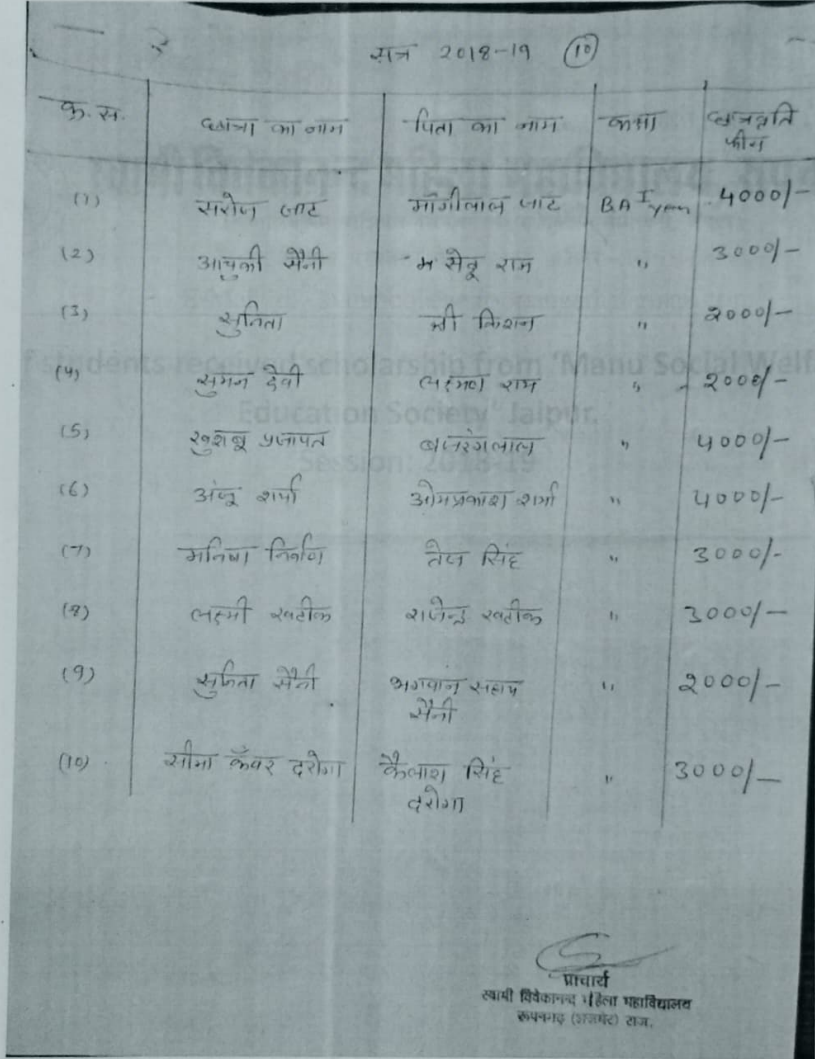 सत्र 2018-19 (10)
क्र.स. छात्रा का नाम पिता का नाम कक्षा छात्रवृति
(1) सरोज जाट माँगीलाल जाट BA I year 4000/-
(2) सैनी राम " 3000/-
(3) सुनिता श्री किशन " 2000/-
(4) सुमन देवी लक्ष्मण राम " 2000/-
(5) खुशबू प्रजापत बजरंगलाल " 4000/-
(6) अंजू शर्मा ओमप्रकाश शर्मा " 4000/-
(7) मनिषा निर्वाण तेज सिंह " 3000/-
(8) लक्ष्मी खटीक राजेन्द्र खटीक " 3000/-
(9) सुनिता सैनी भगवान सहाय " 2000/-
सैनी
(10) सीमा कँवर दरोगा कैलाश सिंह " 3000/-
दरोगा
students received scholarship from 'Manu Social Welf
Education Society' Jaipur.
Session: 2018-19
प्राचार्य
स्वामी विवेकानन्द महिला महाविद्यालय
रूपनगढ़ (अजमेर) राज.